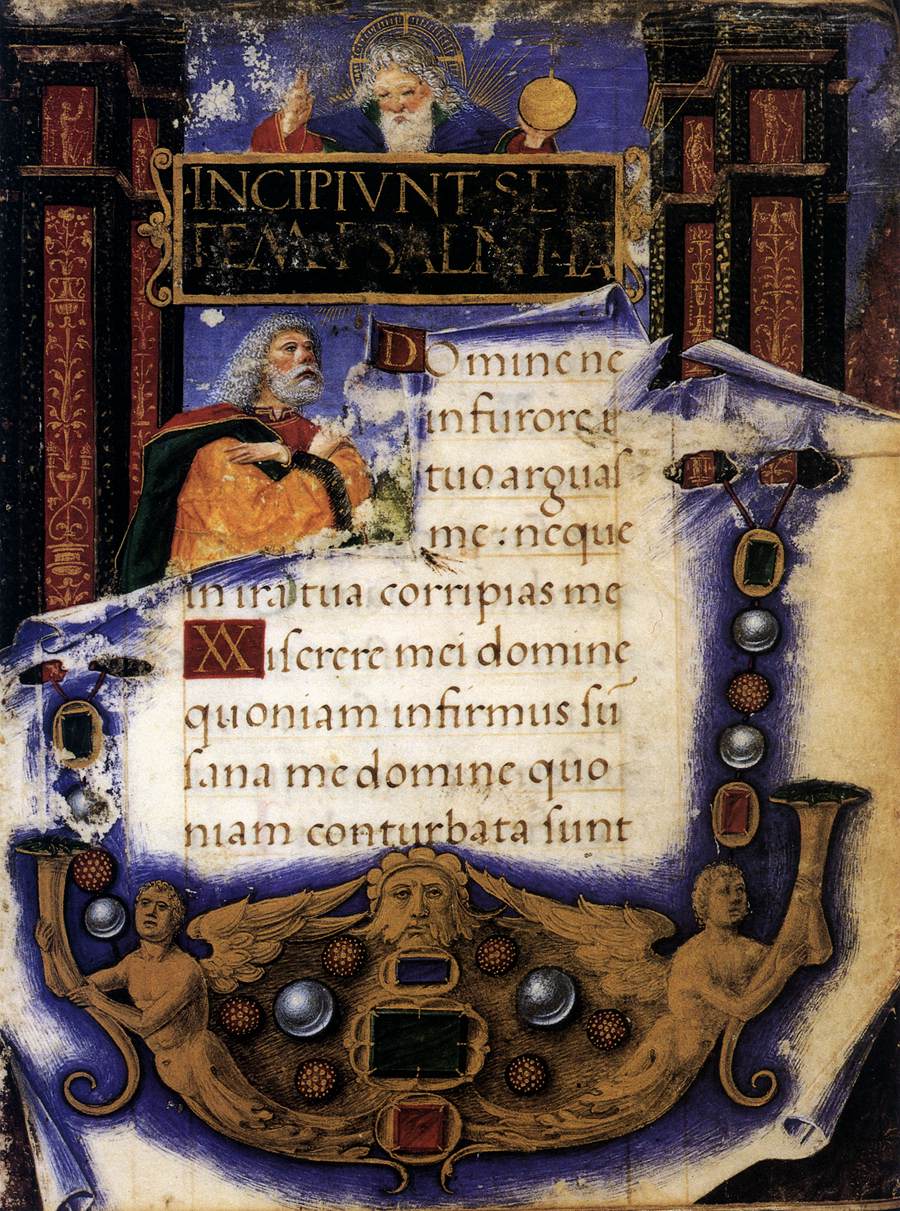 INCIPIVNT SEP
TEM PSALMI
DOmine ne
in furore
tuo arguaſ
me : neque
in ira tua corripias me
Miſerere mei domine
quoniam infirmus ſū
ſana me domine quo
niam conturbata ſunt